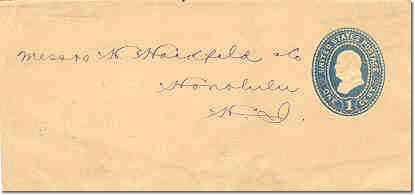 Messrs H Hackfeld & Co
Honolulu
H. I.
UNITED STATES POSTAGE
ONE 1 CENT